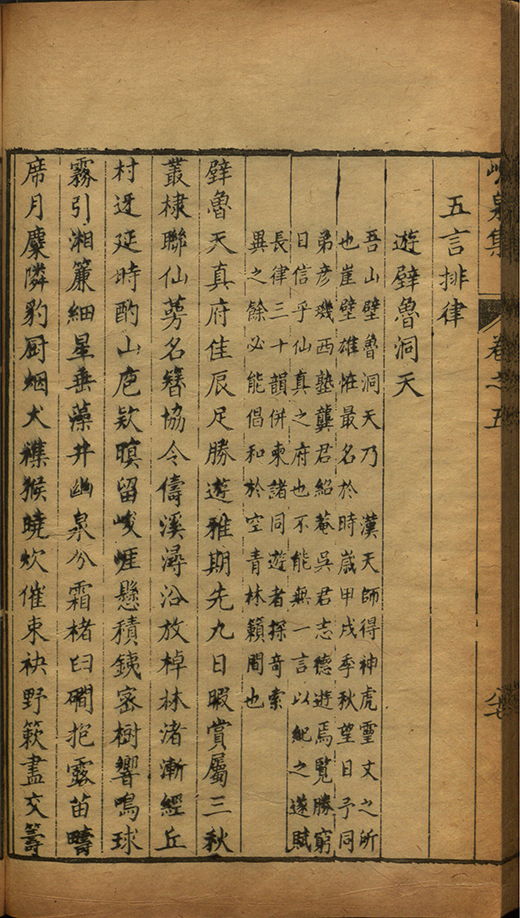 峴泉集 卷之五
五言排律
遊壁魯洞天
吾山壁魯洞天乃 漢天師得神虎靈文之所
也崖壁雄恠最名於時歲甲戌季秋望日予同
弟彦璣西塾龔君紹菴吳君志德遊焉覧勝窮
日信乎仙真之府也不能無一言以紀之遂賦
長律三十韻併柬諸同遊者探竒索
異之餘必能倡和於空青林籟間也
壁魯天真府佳辰足勝遊雅期先九日暇賞屬三秋
叢棣聯仙蕚名簪協令儔溪潯沿放棹林渚漸經丘
村迓延時酌山庖欵暝留峻崕懸積鐵宻樹響鳴球
霧引湘簾細星垂藻井幽泉分霜楮臼磵抱露苗疇
席月麋隣豹厨烟犬襍猴曉炊催束袂野簌盡交籌